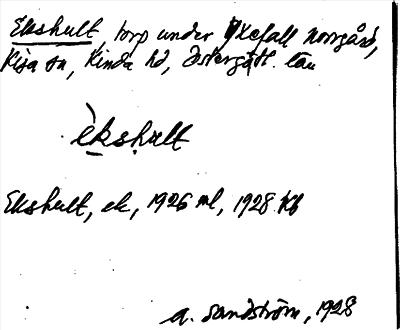 Ekshult, torp under Yxefall Norrgård,
Kisa sn, Kinda hd, Östergötl. län
èkshult
Ekshult, ek, 1926 ml, 1928 Kb
A. Sandström, 1928